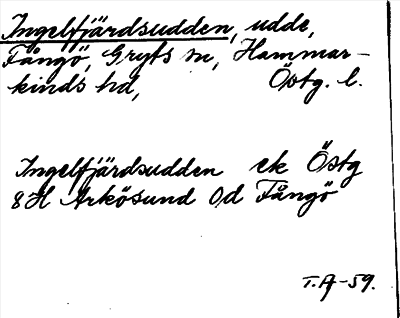 Ingelfjärdsudden, udde,
Fångö, Gryts sn, Hammar-
kinds hd, Östg. l.
Ingelfjärdsudden ek Östg
8H Arkösund 0d Fångö
T.A-59.